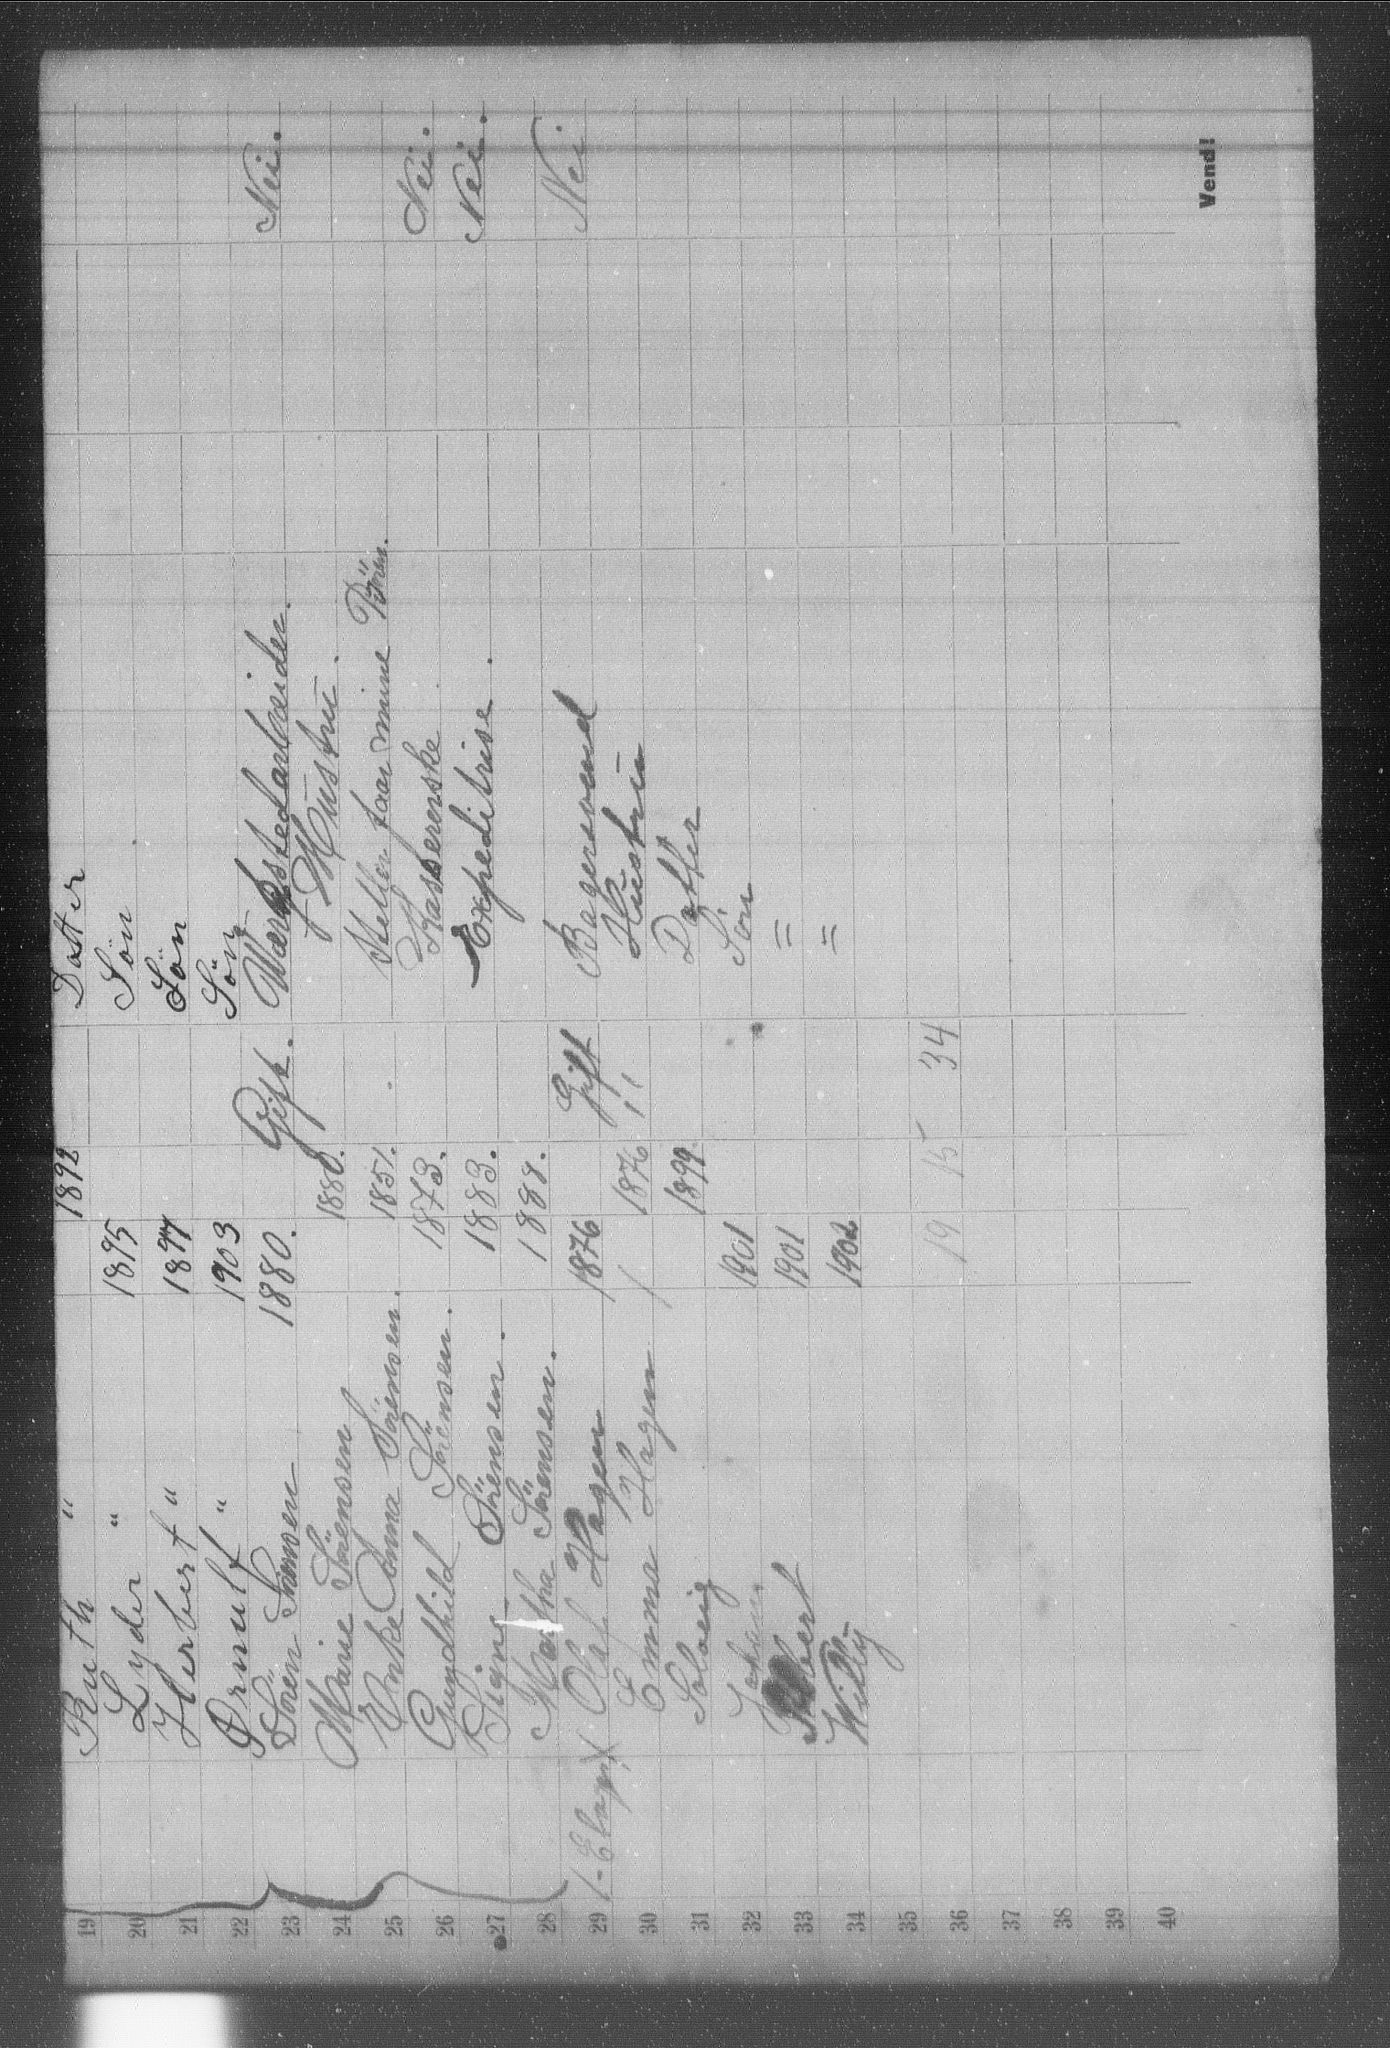 19 Ruth " 1892 Datter
20 Lyder " 1895 Sön
21 Herbert " 1897 Sön
22 Ornulf " 1903 Sön
23 Sören Sörensen 1880. Gift. Værkstedarbeider. Nei.
24 Marie Sörensen 1880. Hustru.
25 Anna Sörensen. 1851. steller for mine Börn.
26 Gundhild Sörensen. 1873. Kassererske Nei.
27 Signe Sörensen. 1883. Expeditrise. Nei.
28 Martha Sörensen. 1888.
29 1-Etage Olaf Hagen 1876 Gift Bagersvend Nei.
30 Emma Hagen 1876 " Hustru
31 Solveig 1899. Datter
32 Johan 1901 Sön
33 1901 "
34 Willy 1902 "
35
36 19 15 34
37
38
39
40
Vend!